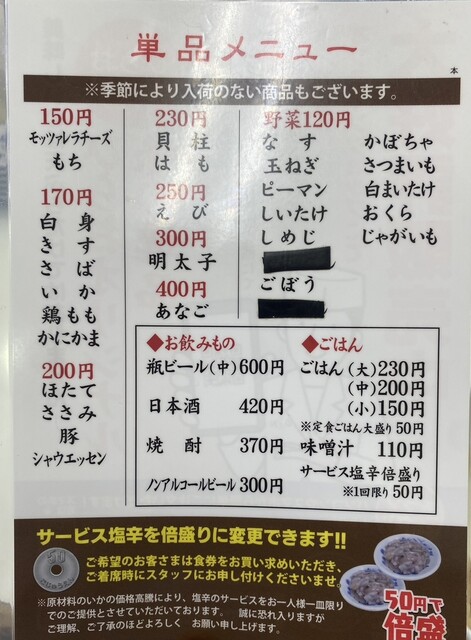 単品メニュー
本
※季節により入荷のない商品もございます。
150円
モッツァレラチーズ
もち
170円
白身
きす
さば
いか
鶏もも
かにかま
200円
ほたて
ささみ
豚
シャウエッセン
230円
貝柱
はも
250円
えび
300円
明太子
400円
あなご
野菜120円
なす
玉ねぎ
ピーマン
しいたけ
しめじ
ごぼう
かぼちゃ
さつまいも
白まいたけ
おくら
じゃがいも
◆お飲みもの
瓶ビール(中)600円
日本酒 420円
焼酎 370円
ノンアルコールビール300円
◆ごはん
ごはん(大)230円
(中)200円
(小)150円
※定食ごはん大盛り50円
味噌汁 110円
サービス塩辛倍盛り
※1回限り50円
サービス塩辛を倍盛りに変更できます!!
50
ご希望のお客さまは食券をお買い求めいただき、
ご着席時にスタッフにお申し付けくださいませ。
※原材料のいかの価格高騰により、塩辛のサービスをお一人様一皿限り
でのご提供とさせていただいております。 誠に恐れ入りますが
ご理解、ご了承のほどよろしく お願い申し上げます。
50円で
倍盛